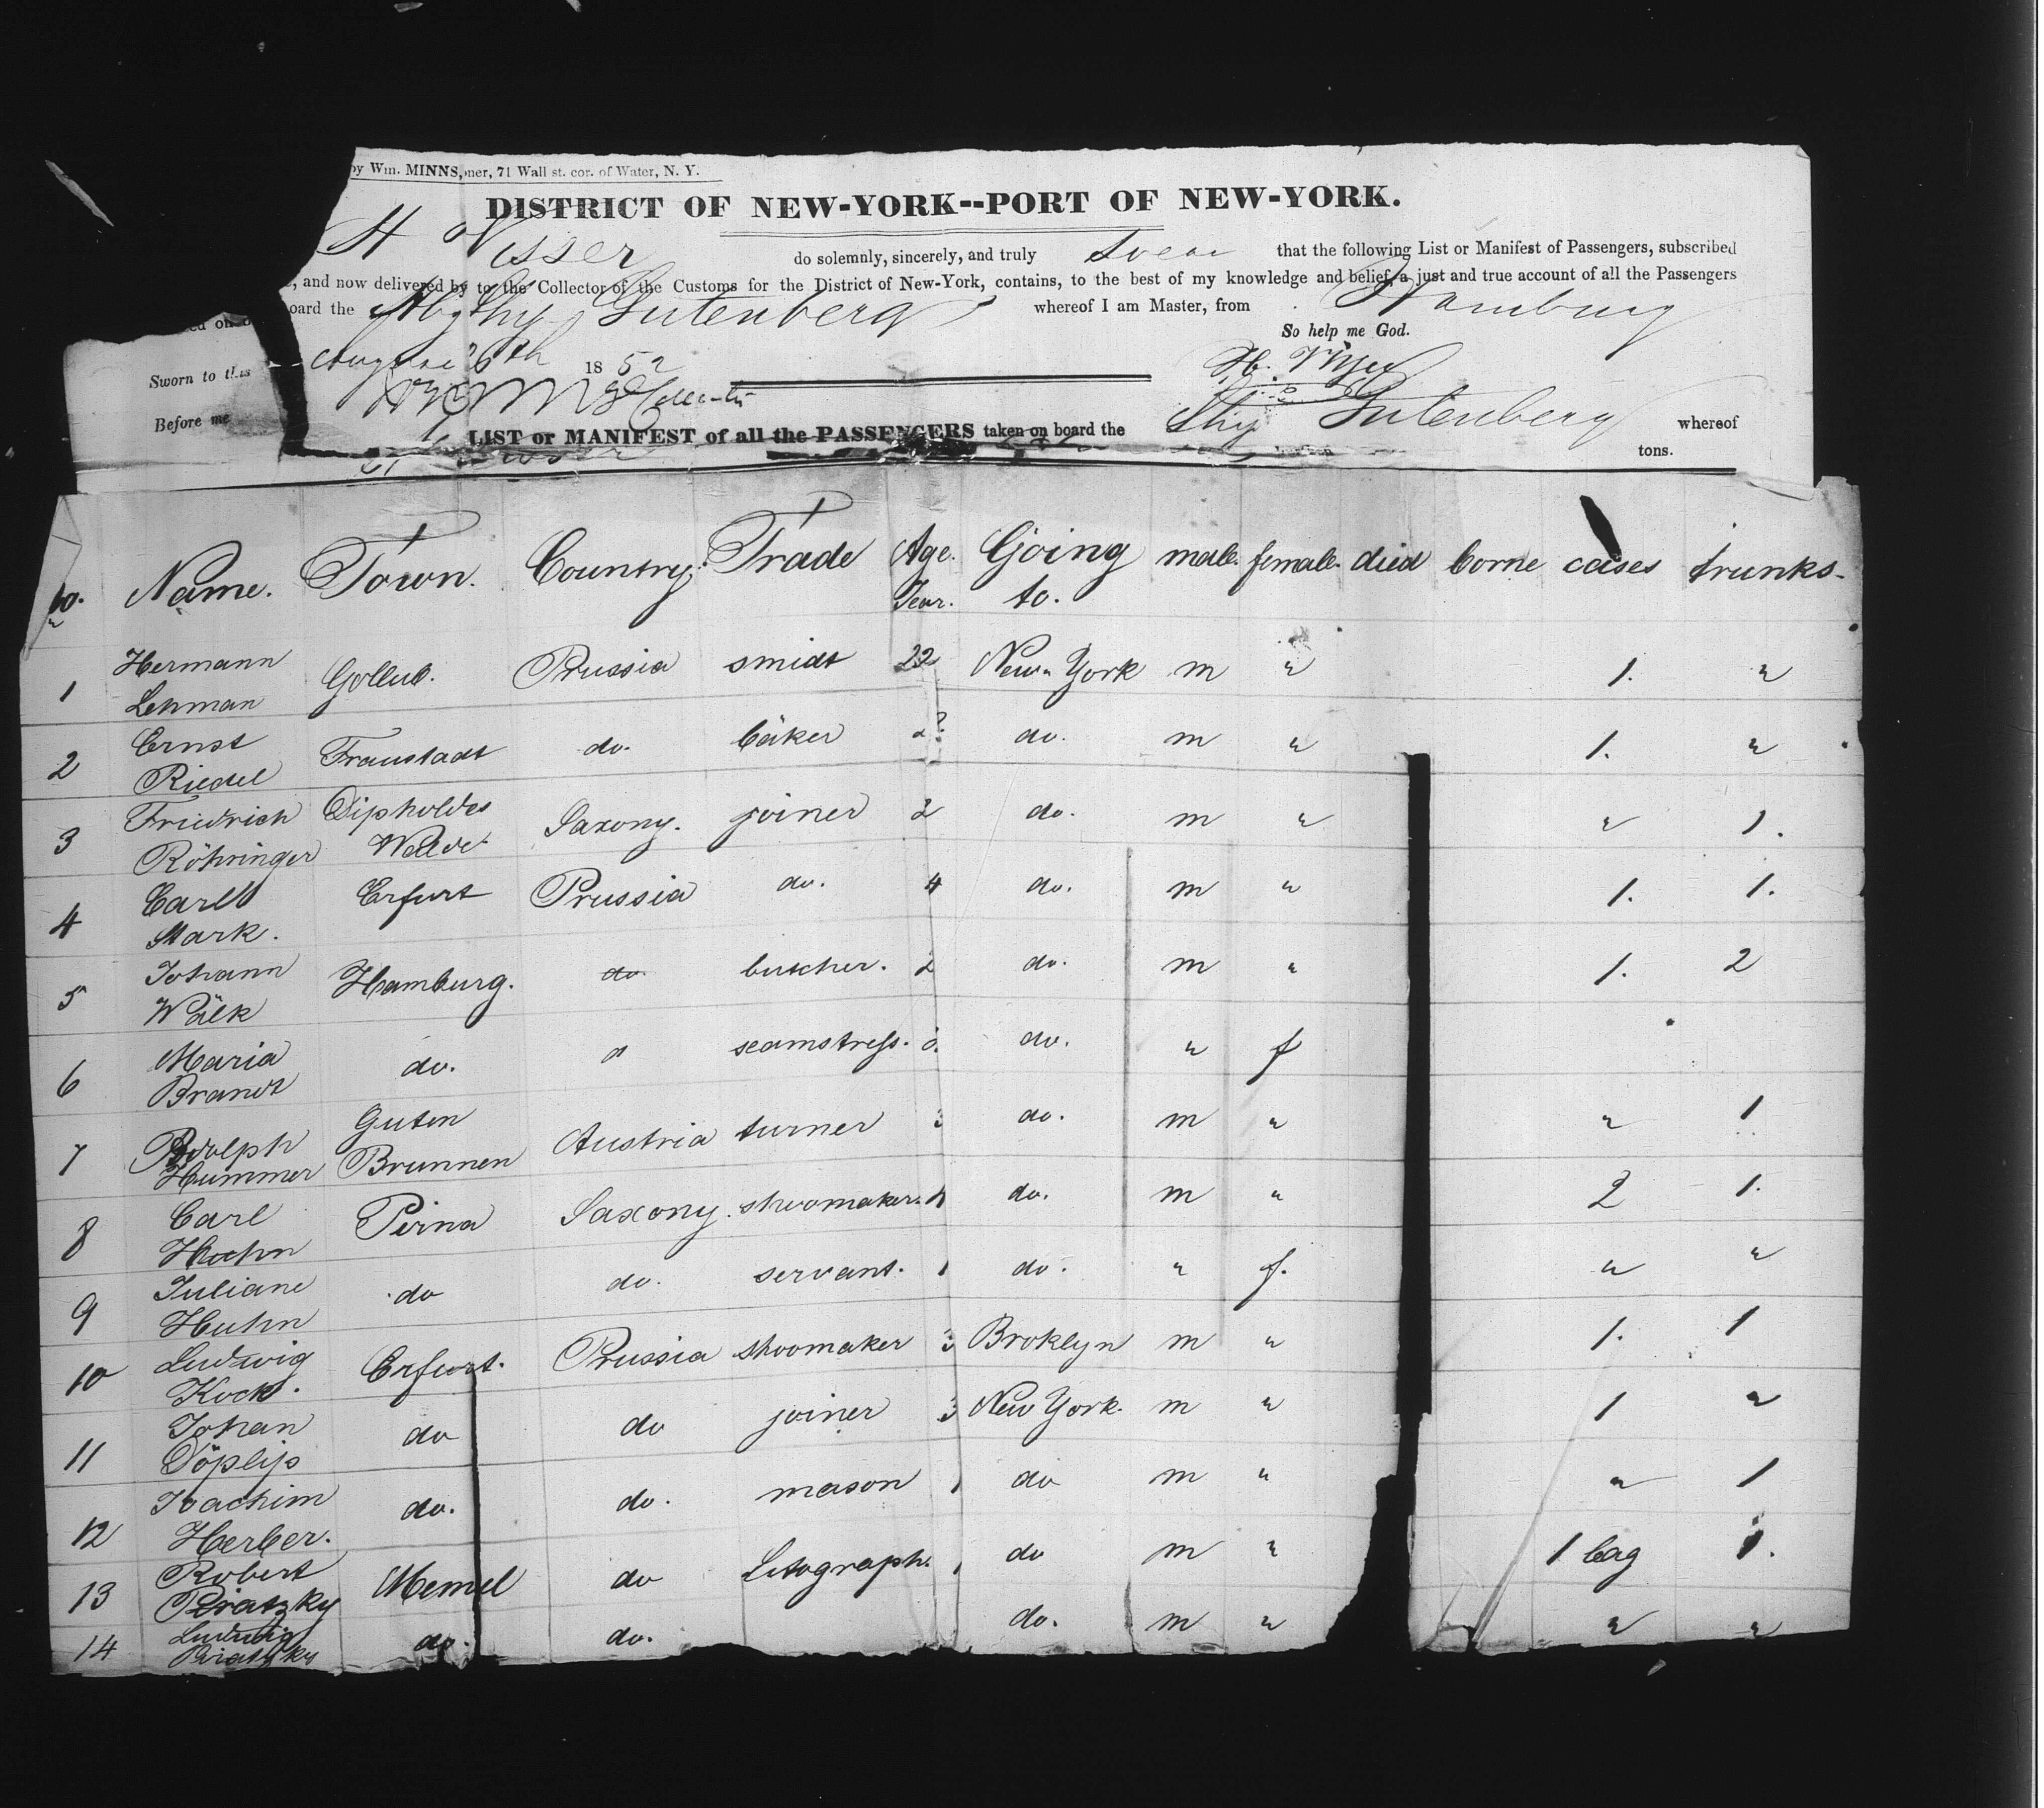 by Wm. MINNS, ner, 71 Wall st. cor. of Water, N. Y.
DISTRICT OF NEW-YORK--PORT OF NEW-YORK.
H Visser do solemnly, sincerely, and truly Swear that the following List or Manifest of Passengers, subscribed
, and now delivered by to the Collector of the Customs for the District of New-York, contains, to the best of my knowledge and belief, a just and true account of all the Passengers
on board the Shp Gutenberg whereof I am Master, from Hamburg
So help me God.
Sworn to this August 26th 1852 H. Visser
Before me
LIST or MANIFEST of all the PASSENGERS taken on board the Shp Gutenberg whereof
tons.
No. Name. Town. Country. Trade Age. Year. Going to. male. female. died borne cases trunks.
1 Hermann Lehman Gollub. Prussia smidt 22 New-York m " 1. "
2 Ernst Riedel Fraustadt do. bäker 2 do. m " 1. "
3 Friedrich Röhringer Dipholdes Walde. Saxony. joiner 2 do. m " " 1.
4 Carl Stark. Erfurt Prussia do. 4 do. m " 1. 1.
5 Johann Wälk Hamburg. do butcher. 2 do. m " 1. 2
6 Maria Brandt do. seamstress. do. " f
7 Adolph Hummer Guten Brunnen Austria turner 3 do. m " " 1
8 Carl Huhn Pirna Saxony. shoomaker. 4 do. m " 2 1.
9 Juliane Huhn do do. servant. 1 do. " f. " "
10 Ludwig Kock. Erfurt. Prussia shoomaker 3 Broklyn m " 1. 1
11 Johan Döplip do do joiner 3 New York. m " 1 "
12 Joachim Herber. do. do. mason 1 do m " " 1
13 Robert Piratzky Memel do Litograph. 1 do m " 1 bag 1.
14 Ludwig Piratzky do. do. do. m " " "